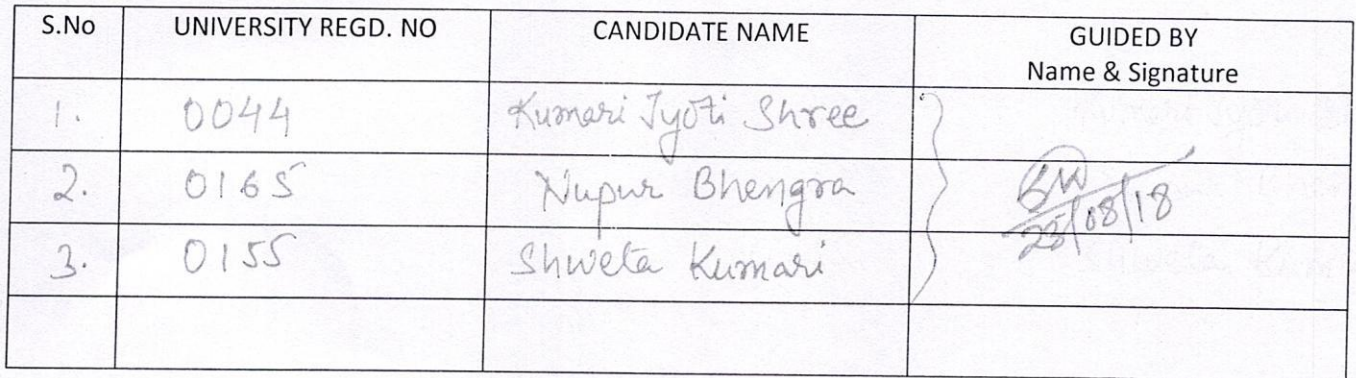 S.No UNIVERSITY REGD. NO CANDIDATE NAME GUIDED BY
Name & Signature
1. 0044 Kumari Jyoti Shree
2. 0165 Nupur Bhengra
23/08/18
3. 0155 Shweta Kumari